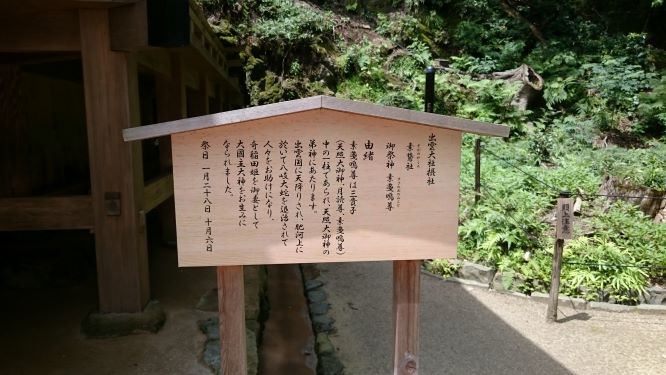 出雲大社摂社
素鵞社
そがのやしろ
御祭神 素戔嗚尊
すさのおのみこと
由緒
素戔嗚尊は三貴子
(天照大御神、月読尊、素戔嗚尊)
中の一柱であられ、天照大御神の
弟神にあたります。
出雲国に天降りされ、肥河上に
於いて八岐大蛇を退治されて
人々をお助けになり、
奇稲田姫を御妻として
大國主大神をお生みに
なられました。
祭日 一月二十八日 十月六日
頭上注意